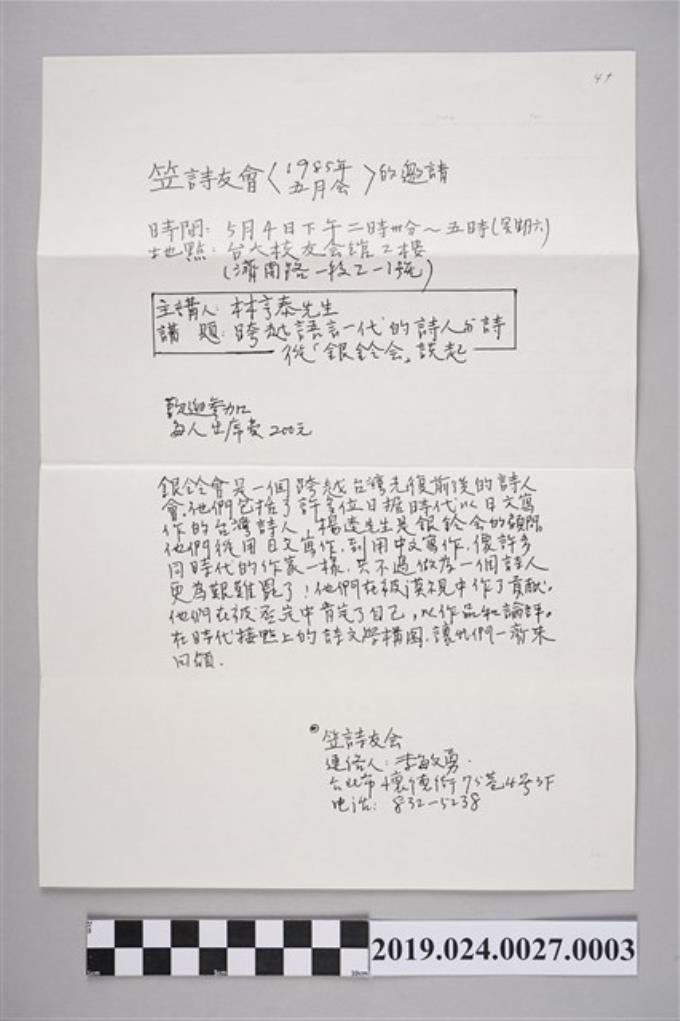 4↑
笠詩友會〈1985年
五月会〉的邀請
時間：5月4日下午二時卅分～五時(星期六)
地點：台大校友会館2樓
(濟南路一段2-1號)
主講人：林亨泰先生
講　題：跨越語言一代的詩人与詩
從「銀鈴会」談起
歡迎參加
每人出席費200元
銀鈴會是一個跨越台灣光復前後的詩人
會，他們包括了許多位日据時代以日文寫
作的台灣詩人，楊逵先生是銀鈴会的顧問。
他們從用日文寫作，到用中文寫作，像許多
同時代的作家一樣，只不過做為一個詩人
更為艱難罷了！他們在被漠視中作了貢献，
他們在被否定中肯定了自己，以作品和論評。
在時代接點上的詩文學構图，讓我們一齊來
回顧．
笠詩友会
連絡人：李敏勇．
台北市懷德街75巷4号3F
电话：832-5238
2019.024.0027.0003